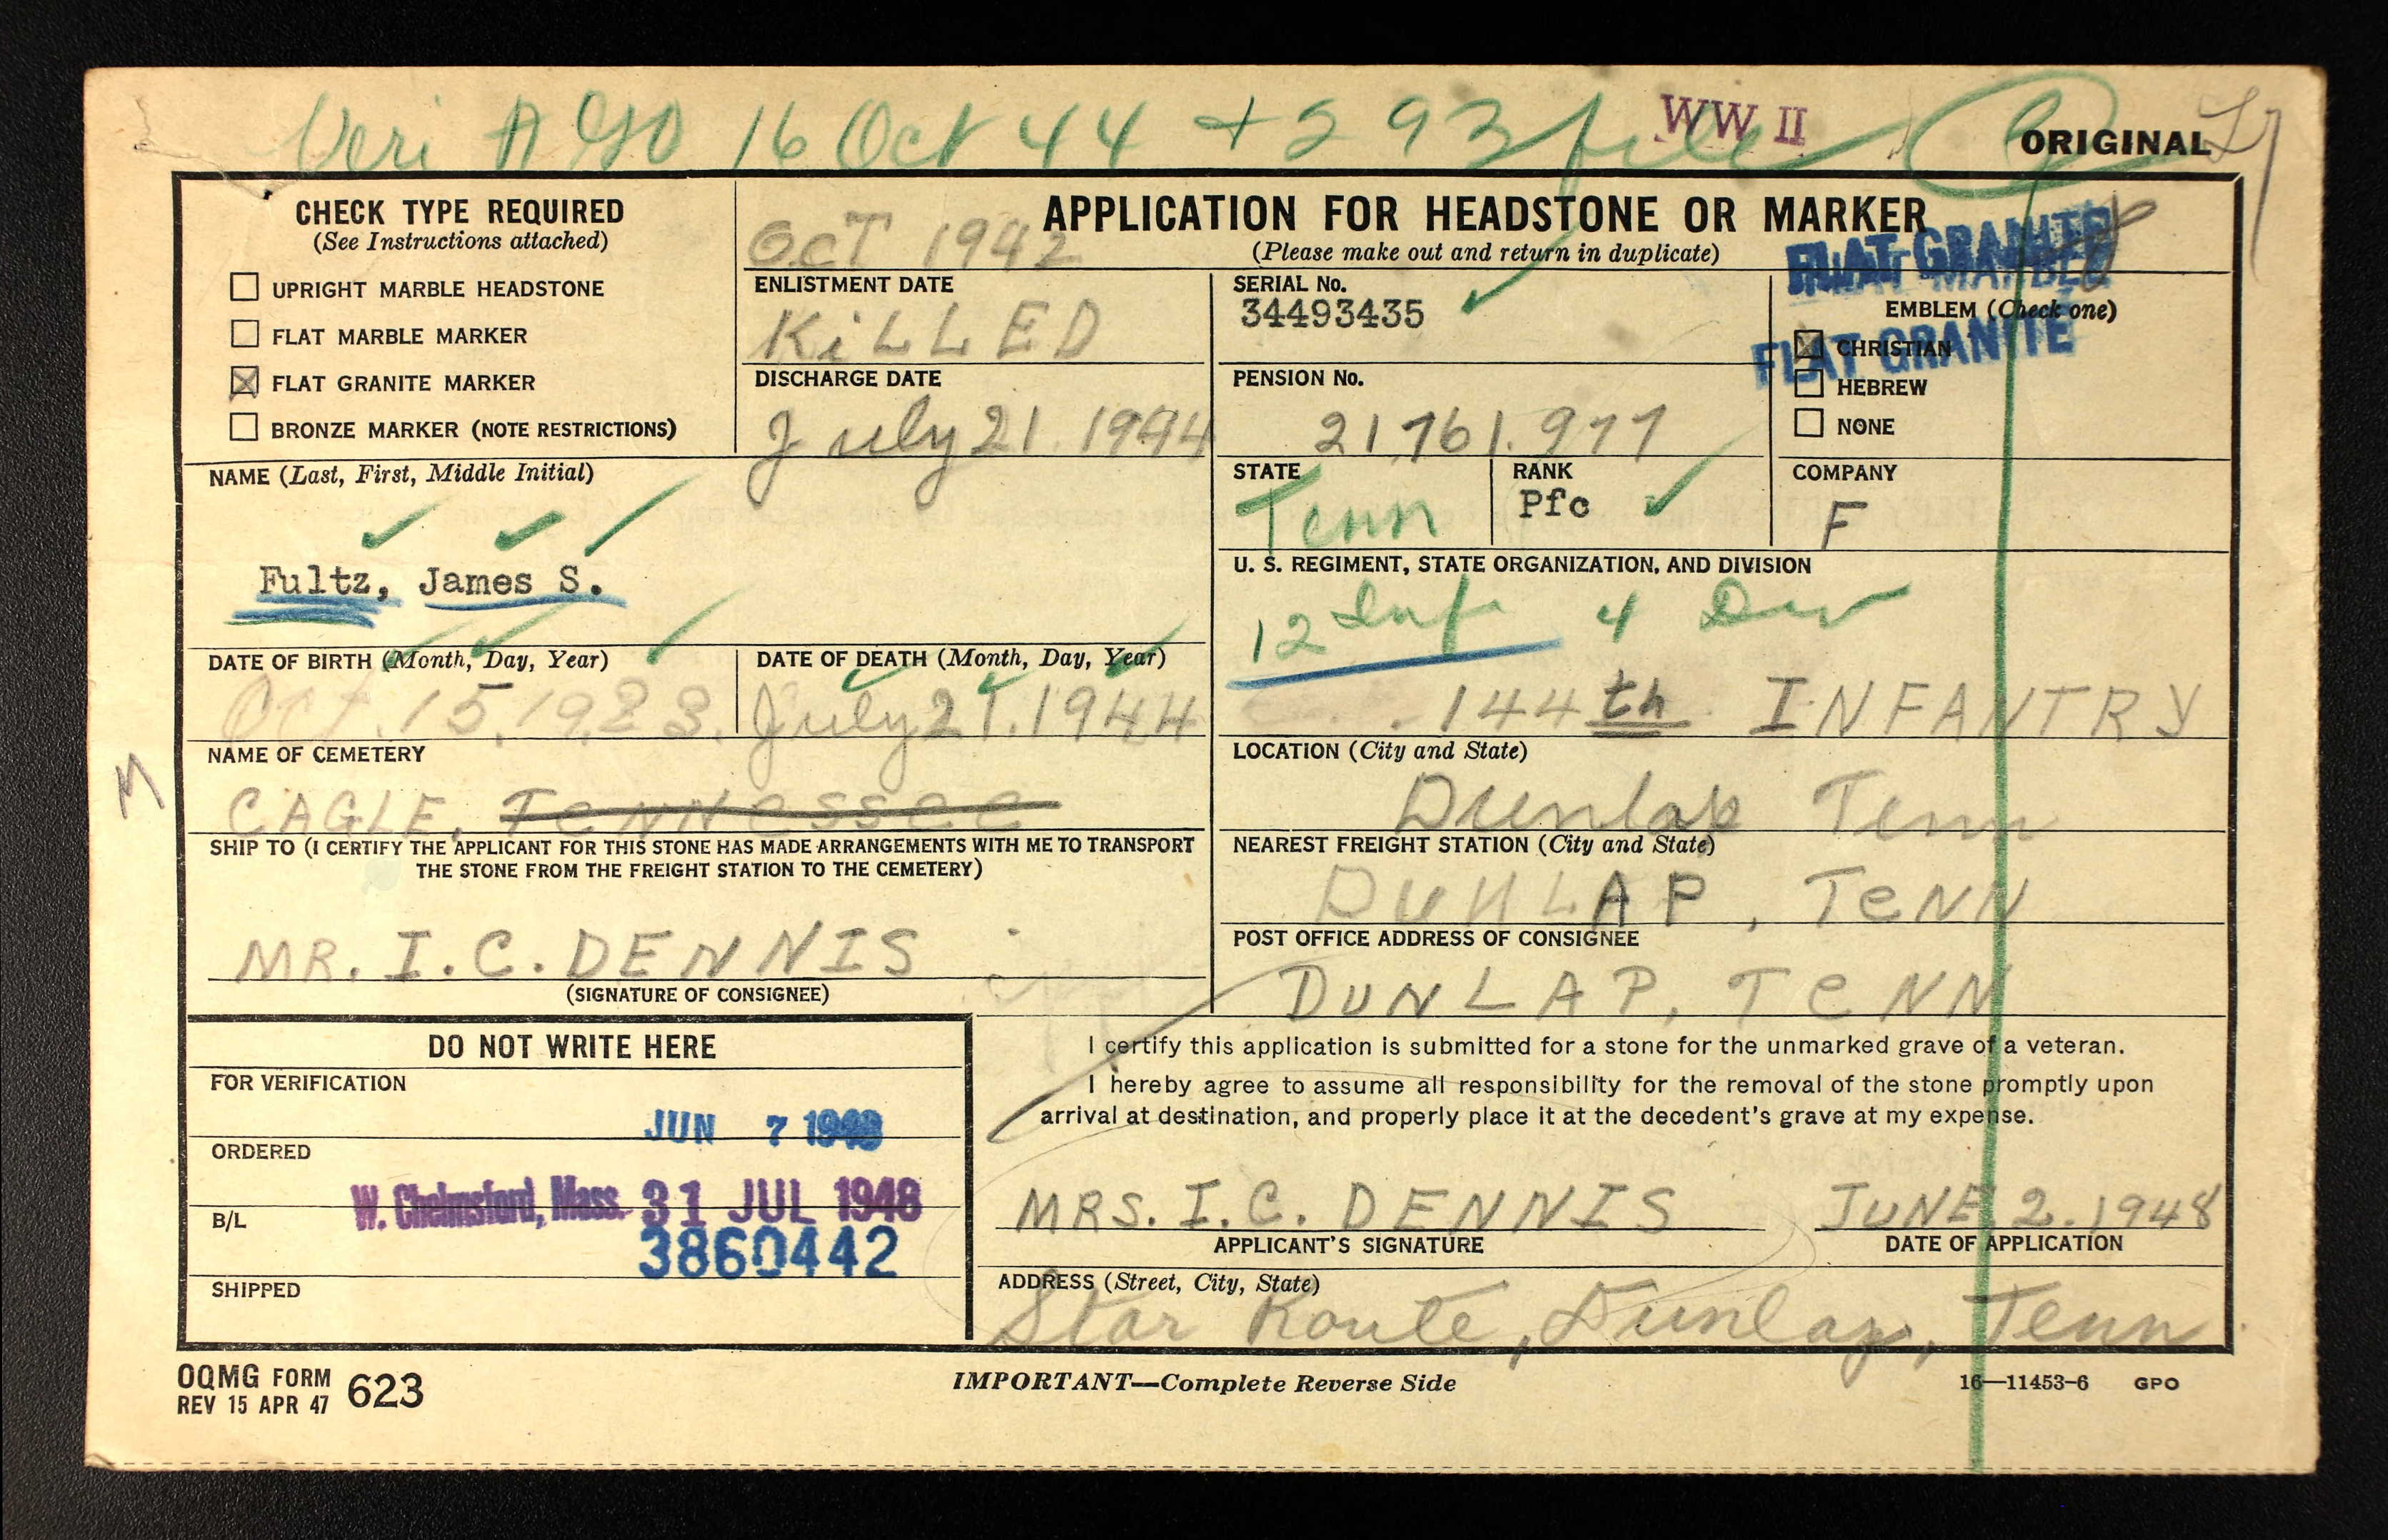 Veri AGO 16 Oct 44 + 293 file
WW II
ORIGINAL
CHECK TYPE REQUIRED
(See Instructions attached)
UPRIGHT MARBLE HEADSTONE
FLAT MARBLE MARKER
FLAT GRANITE MARKER
BRONZE MARKER (NOTE RESTRICTIONS)
APPLICATION FOR HEADSTONE OR MARKER
(Please make out and return in duplicate)
OCT 1942
ENLISTMENT DATE
KiLLED
DISCHARGE DATE
July 21. 1944
SERIAL No.
34493435
PENSION No.
21,761.977
FLAT GRANITE
FLAT MARBLE
EMBLEM (Check one)
CHRISTIAN
FLAT GRANITE
HEBREW
NONE
NAME (Last, First, Middle Initial)
Fultz, James S.
STATE
Tenn
RANK
Pfc
COMPANY
F
U. S. REGIMENT, STATE ORGANIZATION, AND DIVISION
12 Inf 4 Div
144th INFANTRY
DATE OF BIRTH (Month, Day, Year)
Oct. 15, 1923.
DATE OF DEATH (Month, Day, Year)
July 21. 1944
NAME OF CEMETERY
CAGLE, TeNNessee
LOCATION (City and State)
Dunlap Tenn
SHIP TO (I CERTIFY THE APPLICANT FOR THIS STONE HAS MADE ARRANGEMENTS WITH ME TO TRANSPORT
THE STONE FROM THE FREIGHT STATION TO THE CEMETERY)
MR. I. C. DENNIS
(SIGNATURE OF CONSIGNEE)
NEAREST FREIGHT STATION (City and State)
DUNLAP, TeNN
POST OFFICE ADDRESS OF CONSIGNEE
DUNLAP, TeNN
DO NOT WRITE HERE
FOR VERIFICATION
JUN 7 1948
ORDERED
W. Chelmsford, Mass. 31 JUL 1948
B/L
3860442
SHIPPED
I certify this application is submitted for a stone for the unmarked grave of a veteran.
I hereby agree to assume all responsibility for the removal of the stone promptly upon
arrival at destination, and properly place it at the decedent's grave at my expense.
MRS. I. C. DENNIS
APPLICANT'S SIGNATURE
JUNE 2. 1948
DATE OF APPLICATION
ADDRESS (Street, City, State)
Star Route, Dunlap, Tenn
OQMG FORM 623
REV 15 APR 47
IMPORTANT—Complete Reverse Side
16—11453-6 GPO
M